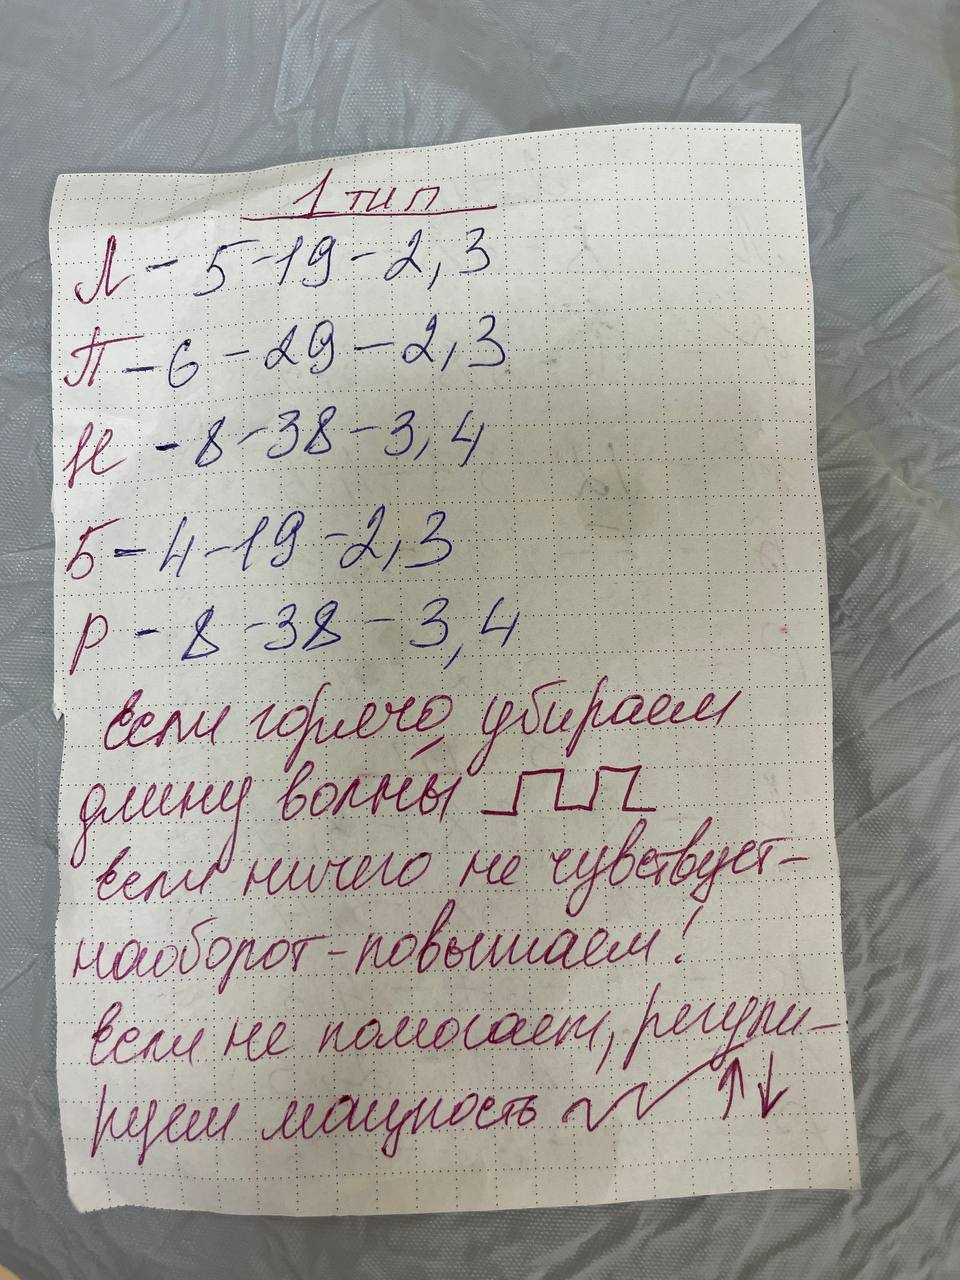 1 тип
Л - 5 - 19 - 2,3
П - 6 - 29 - 2,3
Н - 8 - 38 - 3,4
Б - 4 - 19 - 2,3
Р - 8 - 38 - 3,4
если горячо, убираем
длину волны
если ничего не чувствует -
наоборот - повышаем!
если не помогает, регули-
руем мощность ↑↓